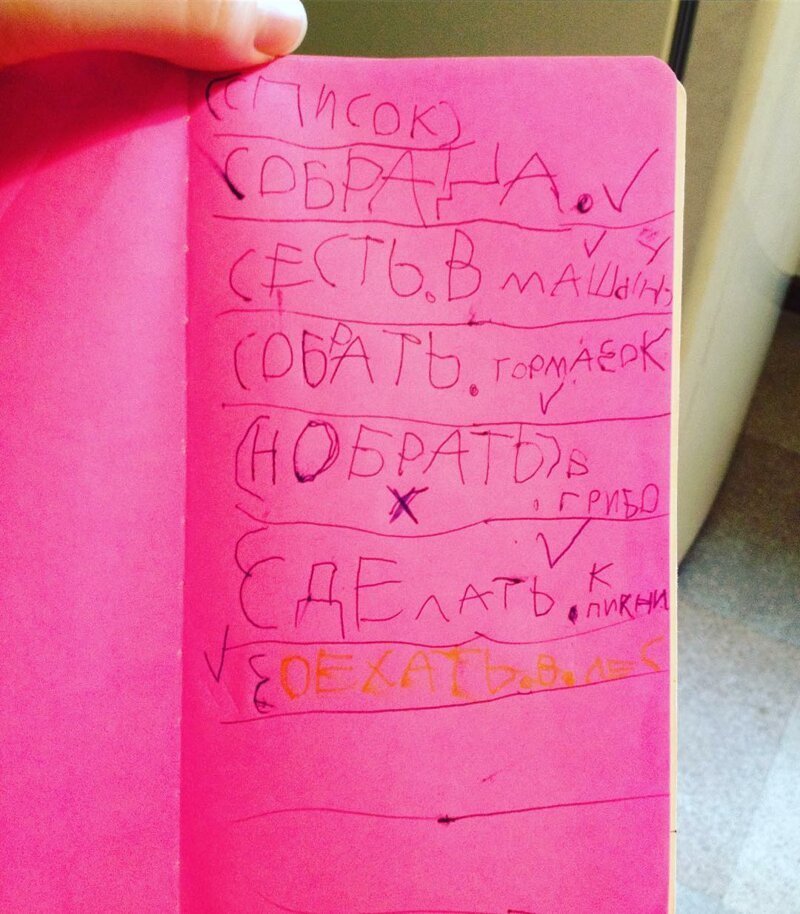 (СПИСОК)
СОБРАЦА.
СЕСТЬ.В МАШЫНУ
СОБРАТЬ. ТОРМАЗОК
(НОБРАТЬ) В
. ГРИБО
СДЕЛАТЬ. К
ПИКНИ
ОЕХАТЬ.В.ЛЕС